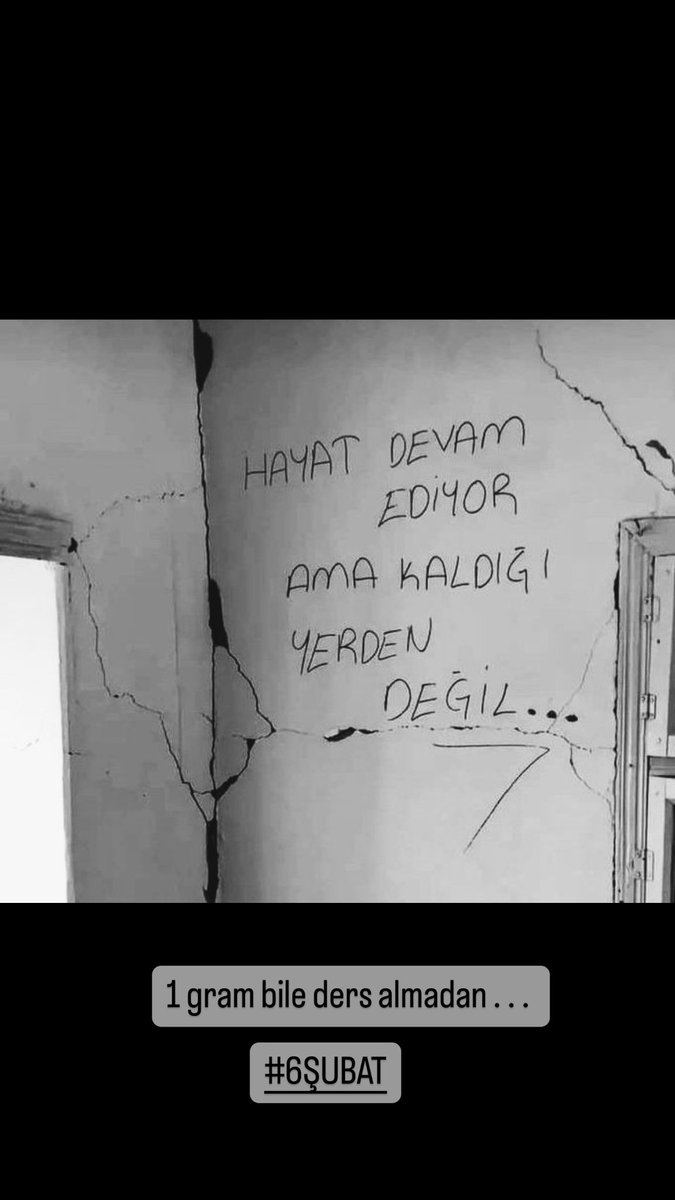 HAYAT DEVAM
EDİYOR
AMA KALDIĞI
YERDEN
DEĞİL...
1 gram bile ders almadan . . .
#6ŞUBAT